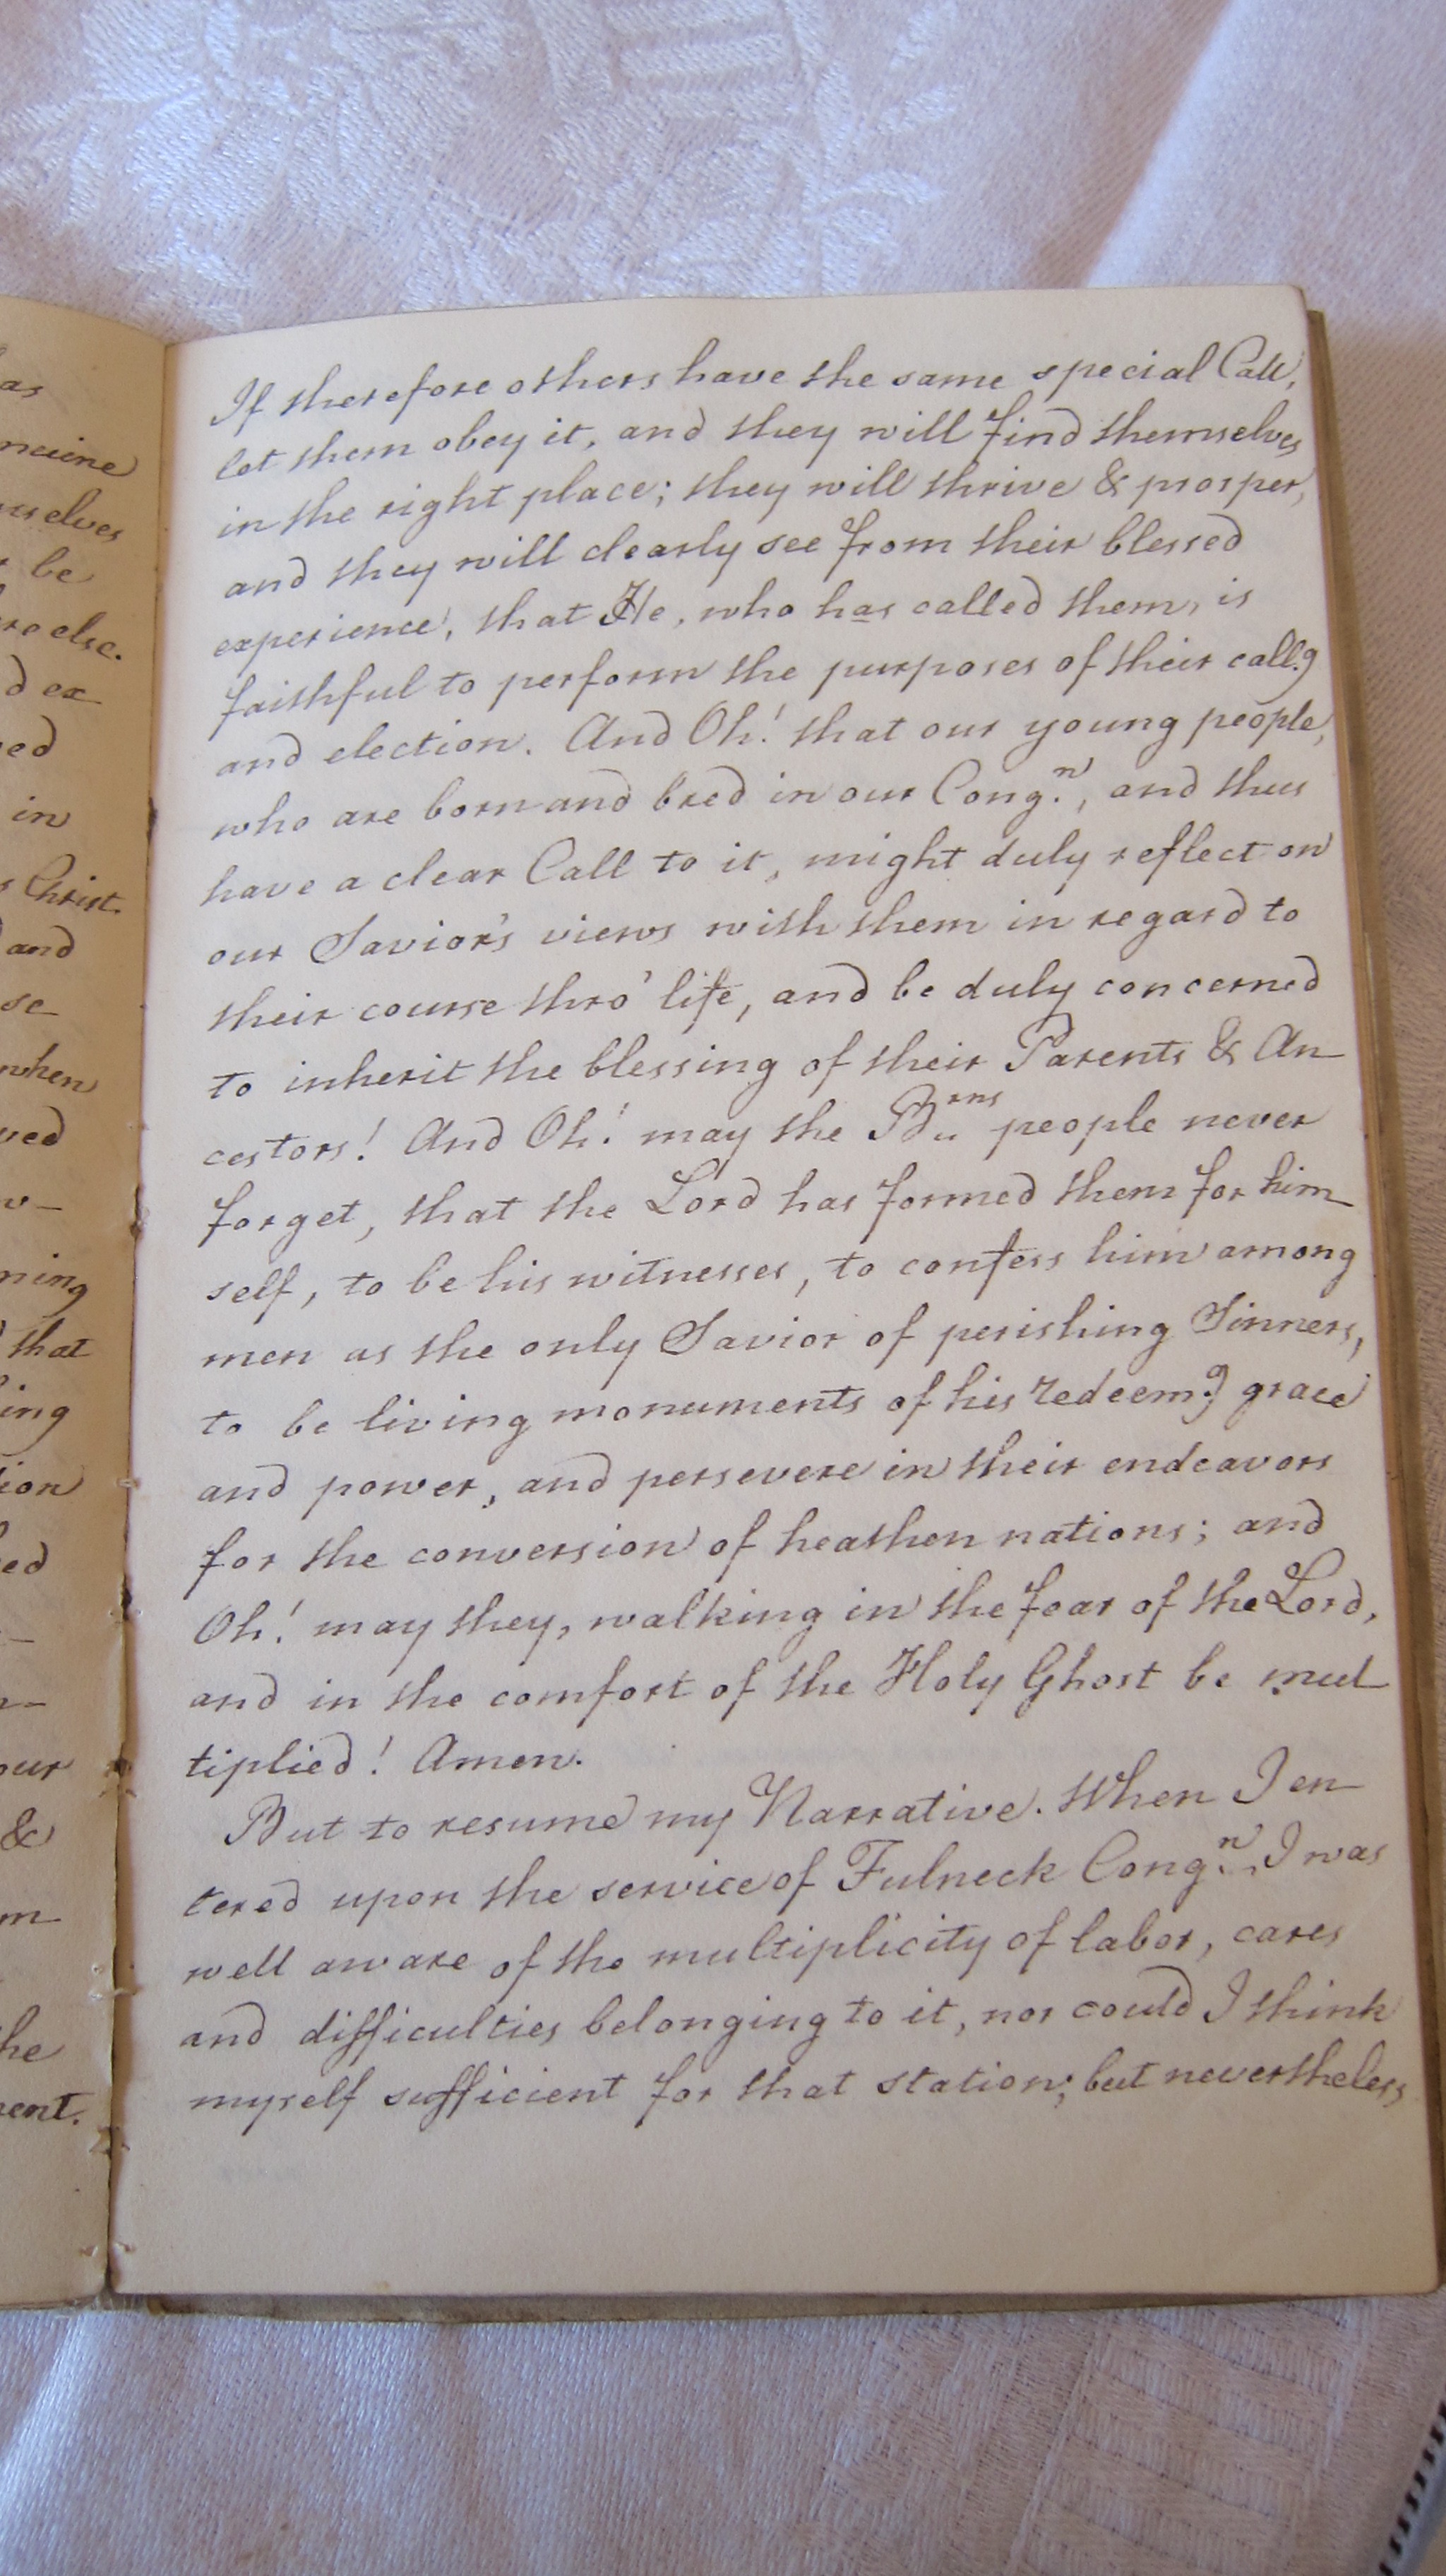 as
maine
rselves
be
re else.
d ex
ed
in
s Christ.
and
se
when
ved
w-
ning
that
ing
tion
ed
n-
our
&
m
the
ent.
If therefore others have the same special Call,
let them obey it, and they will find themselves
in the right place; they will thrive & prosper,
and they will clearly see from their blessed
experience, that He, who has called them, is
faithful to perform the purposes of their call.g
and election. And Oh! that our young people,
who are born and bred in our Cong.n, and thus
have a clear Call to it, might duly reflect on
our Savior's views with them in regard to
their course thro' life, and be duly concerned
to inherit the blessing of their Parents & An
cestors! And Oh! may the Brns people never
forget, that the Lord has formed them for him
self, to be his witnesses, to confess him among
men as the only Savior of perishing Sinners,
to be living monuments of his redeem.g grace
and power, and persevere in their endeavors
for the conversion of heathen nations; and
Oh! may they, walking in the fear of the Lord,
and in the comfort of the Holy Ghost be mul
tiplied! Amen.
But to resume my Narrative. When I en
tered upon the service of Fulneck Cong.n I was
well aware of the multiplicity of labor, cares
and difficulties belonging to it, nor could I think
myself sufficient for that station; but nevertheless